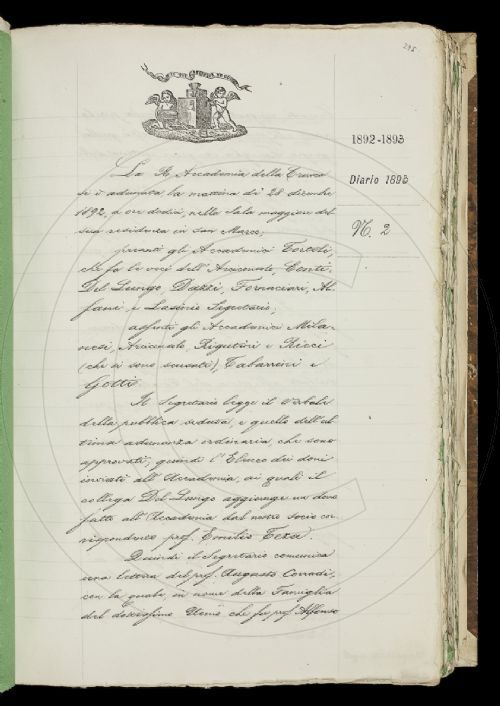 295
1892-1893
Diario 1895
N. 2
La R. Accademia della Crusca
si è adunata la mattina di 28 dicembre
1892, a ore dodici, nella Sala maggiore del
sua residenza in San Marco;
presenti gli Accademici Tortoli,
che fa le veci dell'Arciconsolo, Conti,
Del Lungo, Dazzi, Fornaciari, Al-
fani, e Lasinio Segretario;
assenti gli Accademici Mila-
nesi, Arciconsolo, Rigutini e Ricci
(che si sono scusati), Tabarrini e
Gotti.
Il Segretario legge il Verbale
della pubblica adunza, e quello dell'ul
tima adunanza ordinaria, che sono
approvati; quindi l'Elenco dei doni
inviati all'Accademia, ai quali il
collega Del Lungo aggiunge un dono
fatto all'Accademia dal nostro socio cor
rispondente prof. Emilio Teza.
Quindi il Segretario comunica
una lettera del prof. Augusto Corradi,
con la quale, in nome della Famiglia
del dottissimo Uomo che fu prof. Alfonso